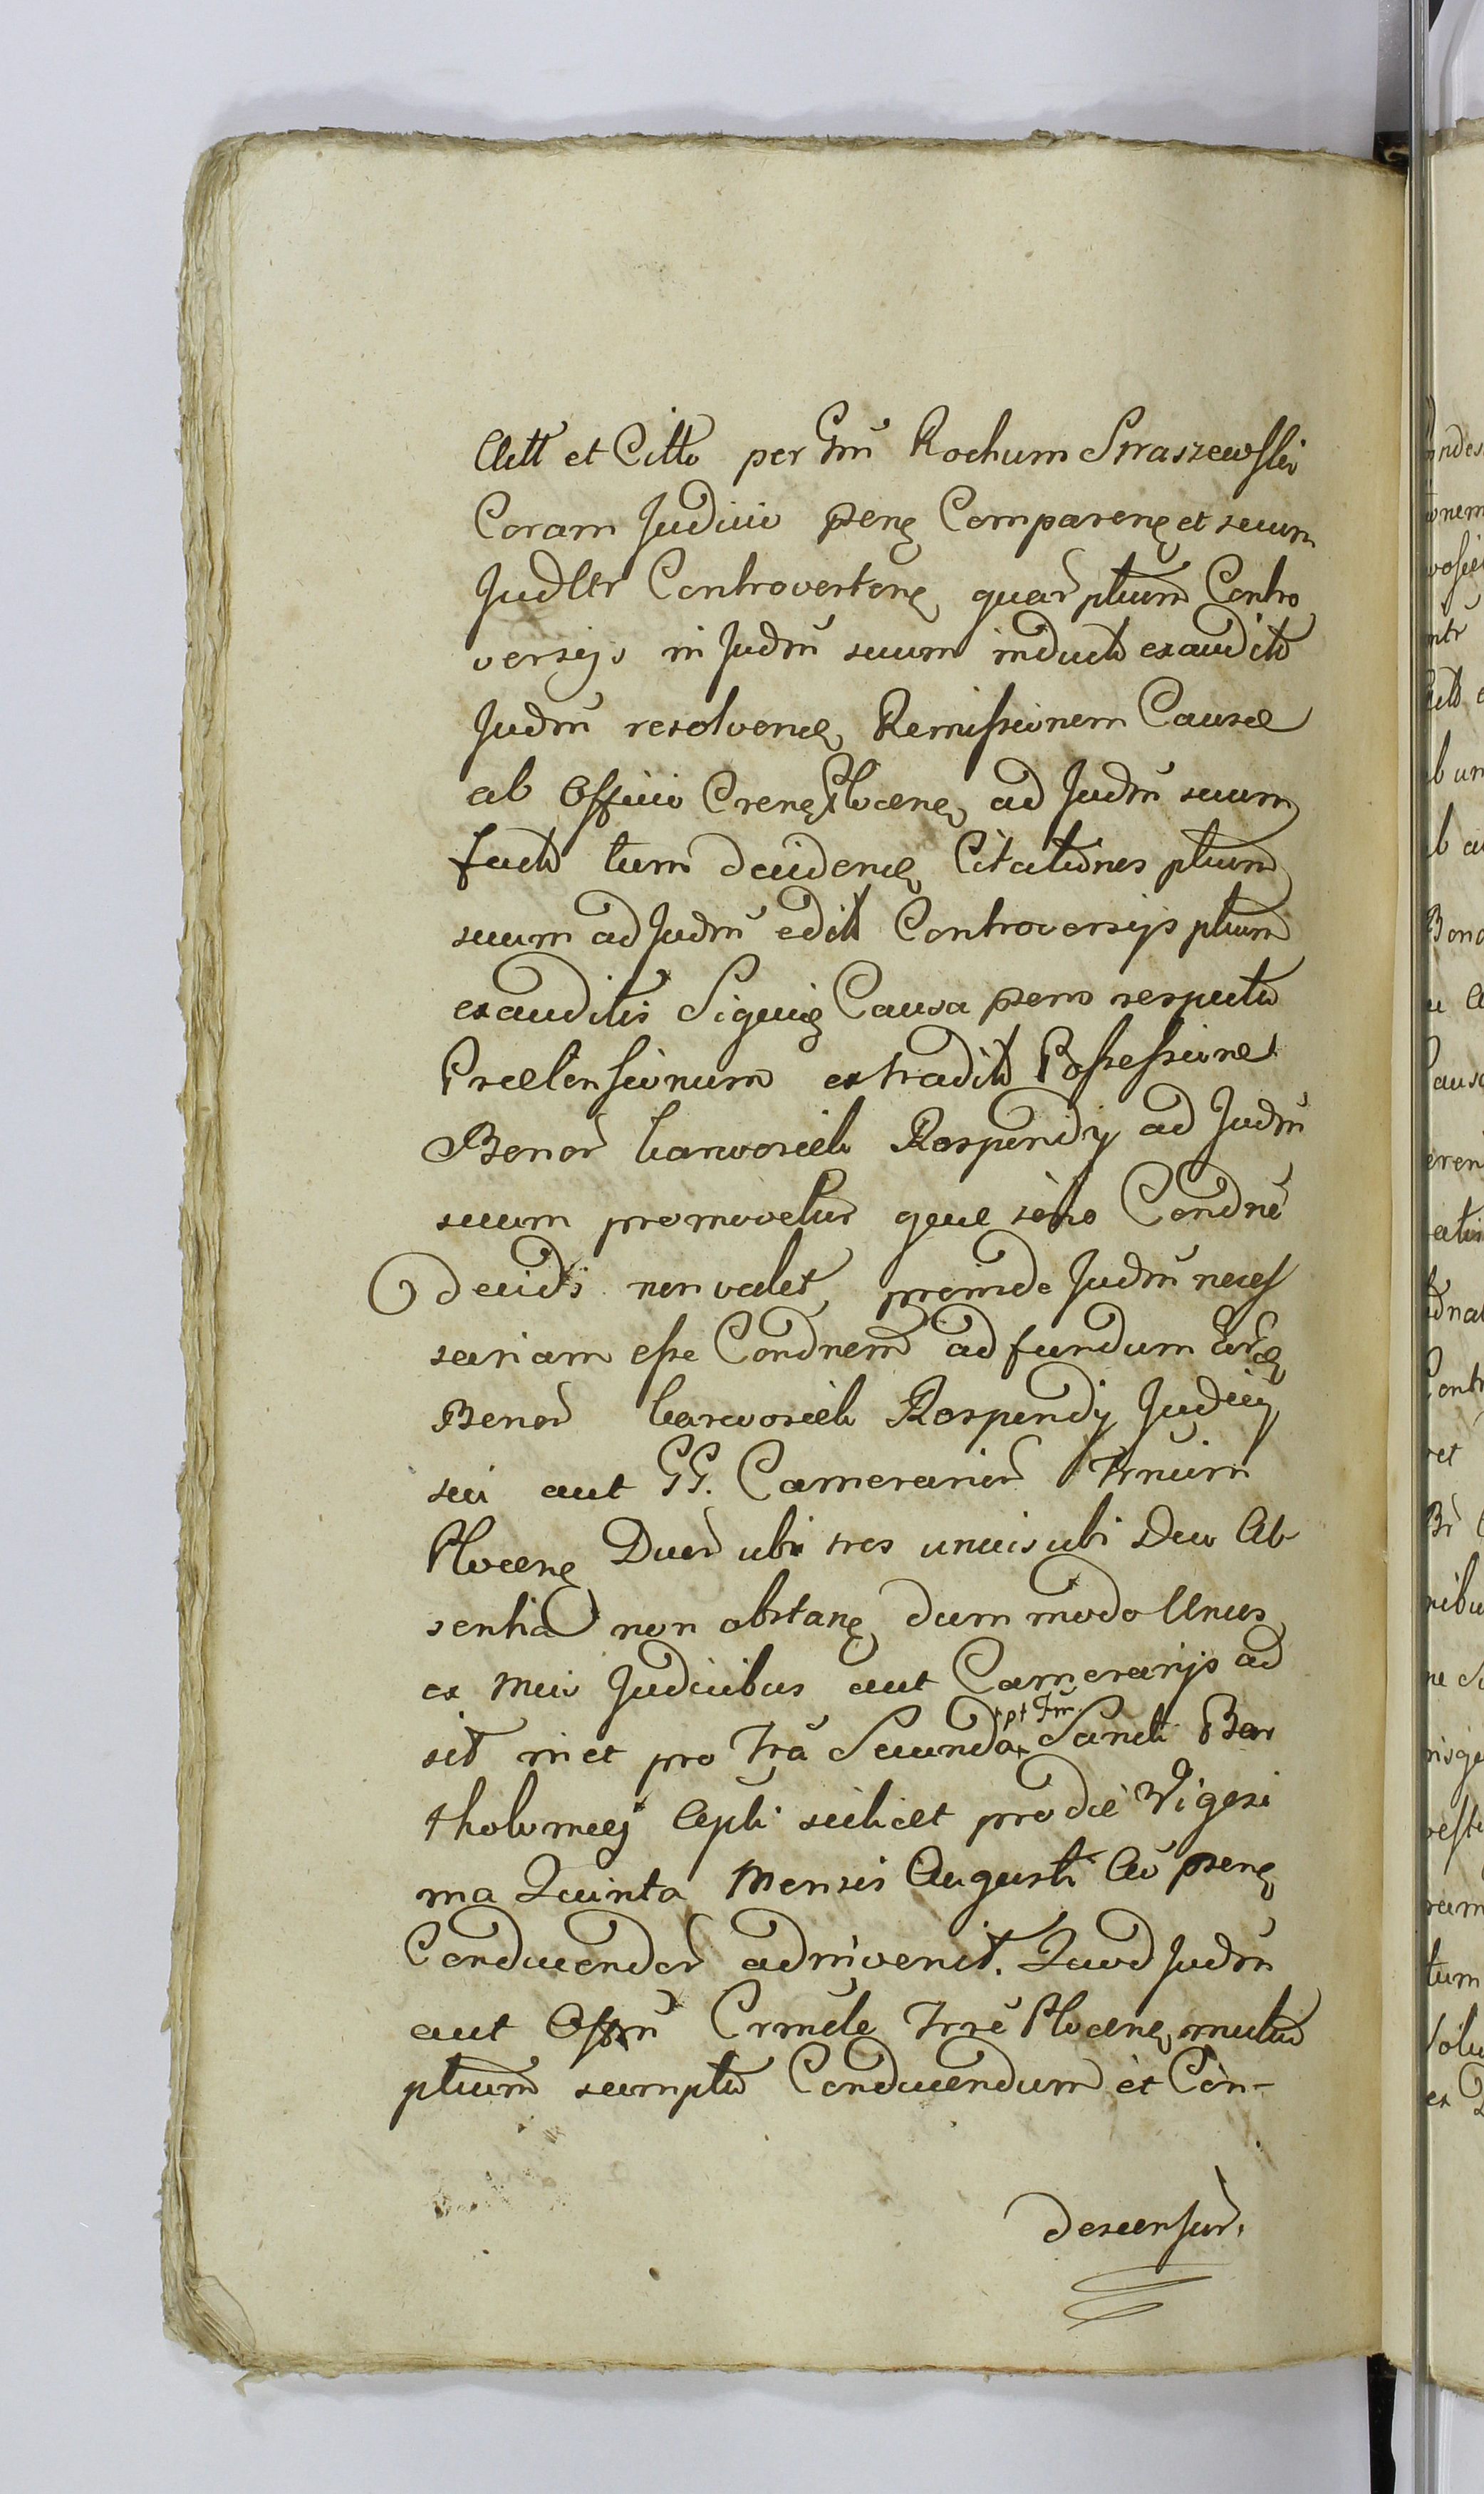 Actt et Citto per Gm̃ Rochum Straszewski
Coram Judicio psenę Comparenę et secum
Judltr Controvertenę quar̃ ptium Contro
versijs in Judm̃ suum induct exaudit
Judm̃ resolvendę Remissionem Causæ
ab Officio Crenę Plocenę ad Judm̃ suum
fact tum decidendę Citationes ptium
suum ad Judm̃ edit Controversijs ptium
exauditis Siquidę Causa psens respectu
Prætensionum extradit Possessione
Bonor̃ Karwosieki Rospendij ad Judm̃
suum promovetur quæ Condne
decidi non valet, proinde Judm̃ neces
sariam esse Condnem ad fundum
Bonor̃ Karwosieki Rospendij Judicij
sui aut GG. Camerarior̃ Trnium
Plocenę Duor̃ ubi tres unius ubi Duo Ab
sentia non obstanę dum modo Unus
ex meis Judicibus aut Camerarijs ad
sit inet pro Fra Secunda pt Fm̃. Sancti Bar
tholomæj Apli scilicet pro die Vigesi
ma Quinta Mensis Augusti Ao psenę
Conducendor̃ adinvenit. Quod Judm̃
aut Offm̃ Crmĩle Trre Plocenę mutuo
ptium sumptu Conducendum et Con-
descensur.